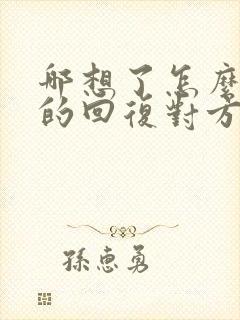 那想了怎麼
的回復對方
孫惠勇